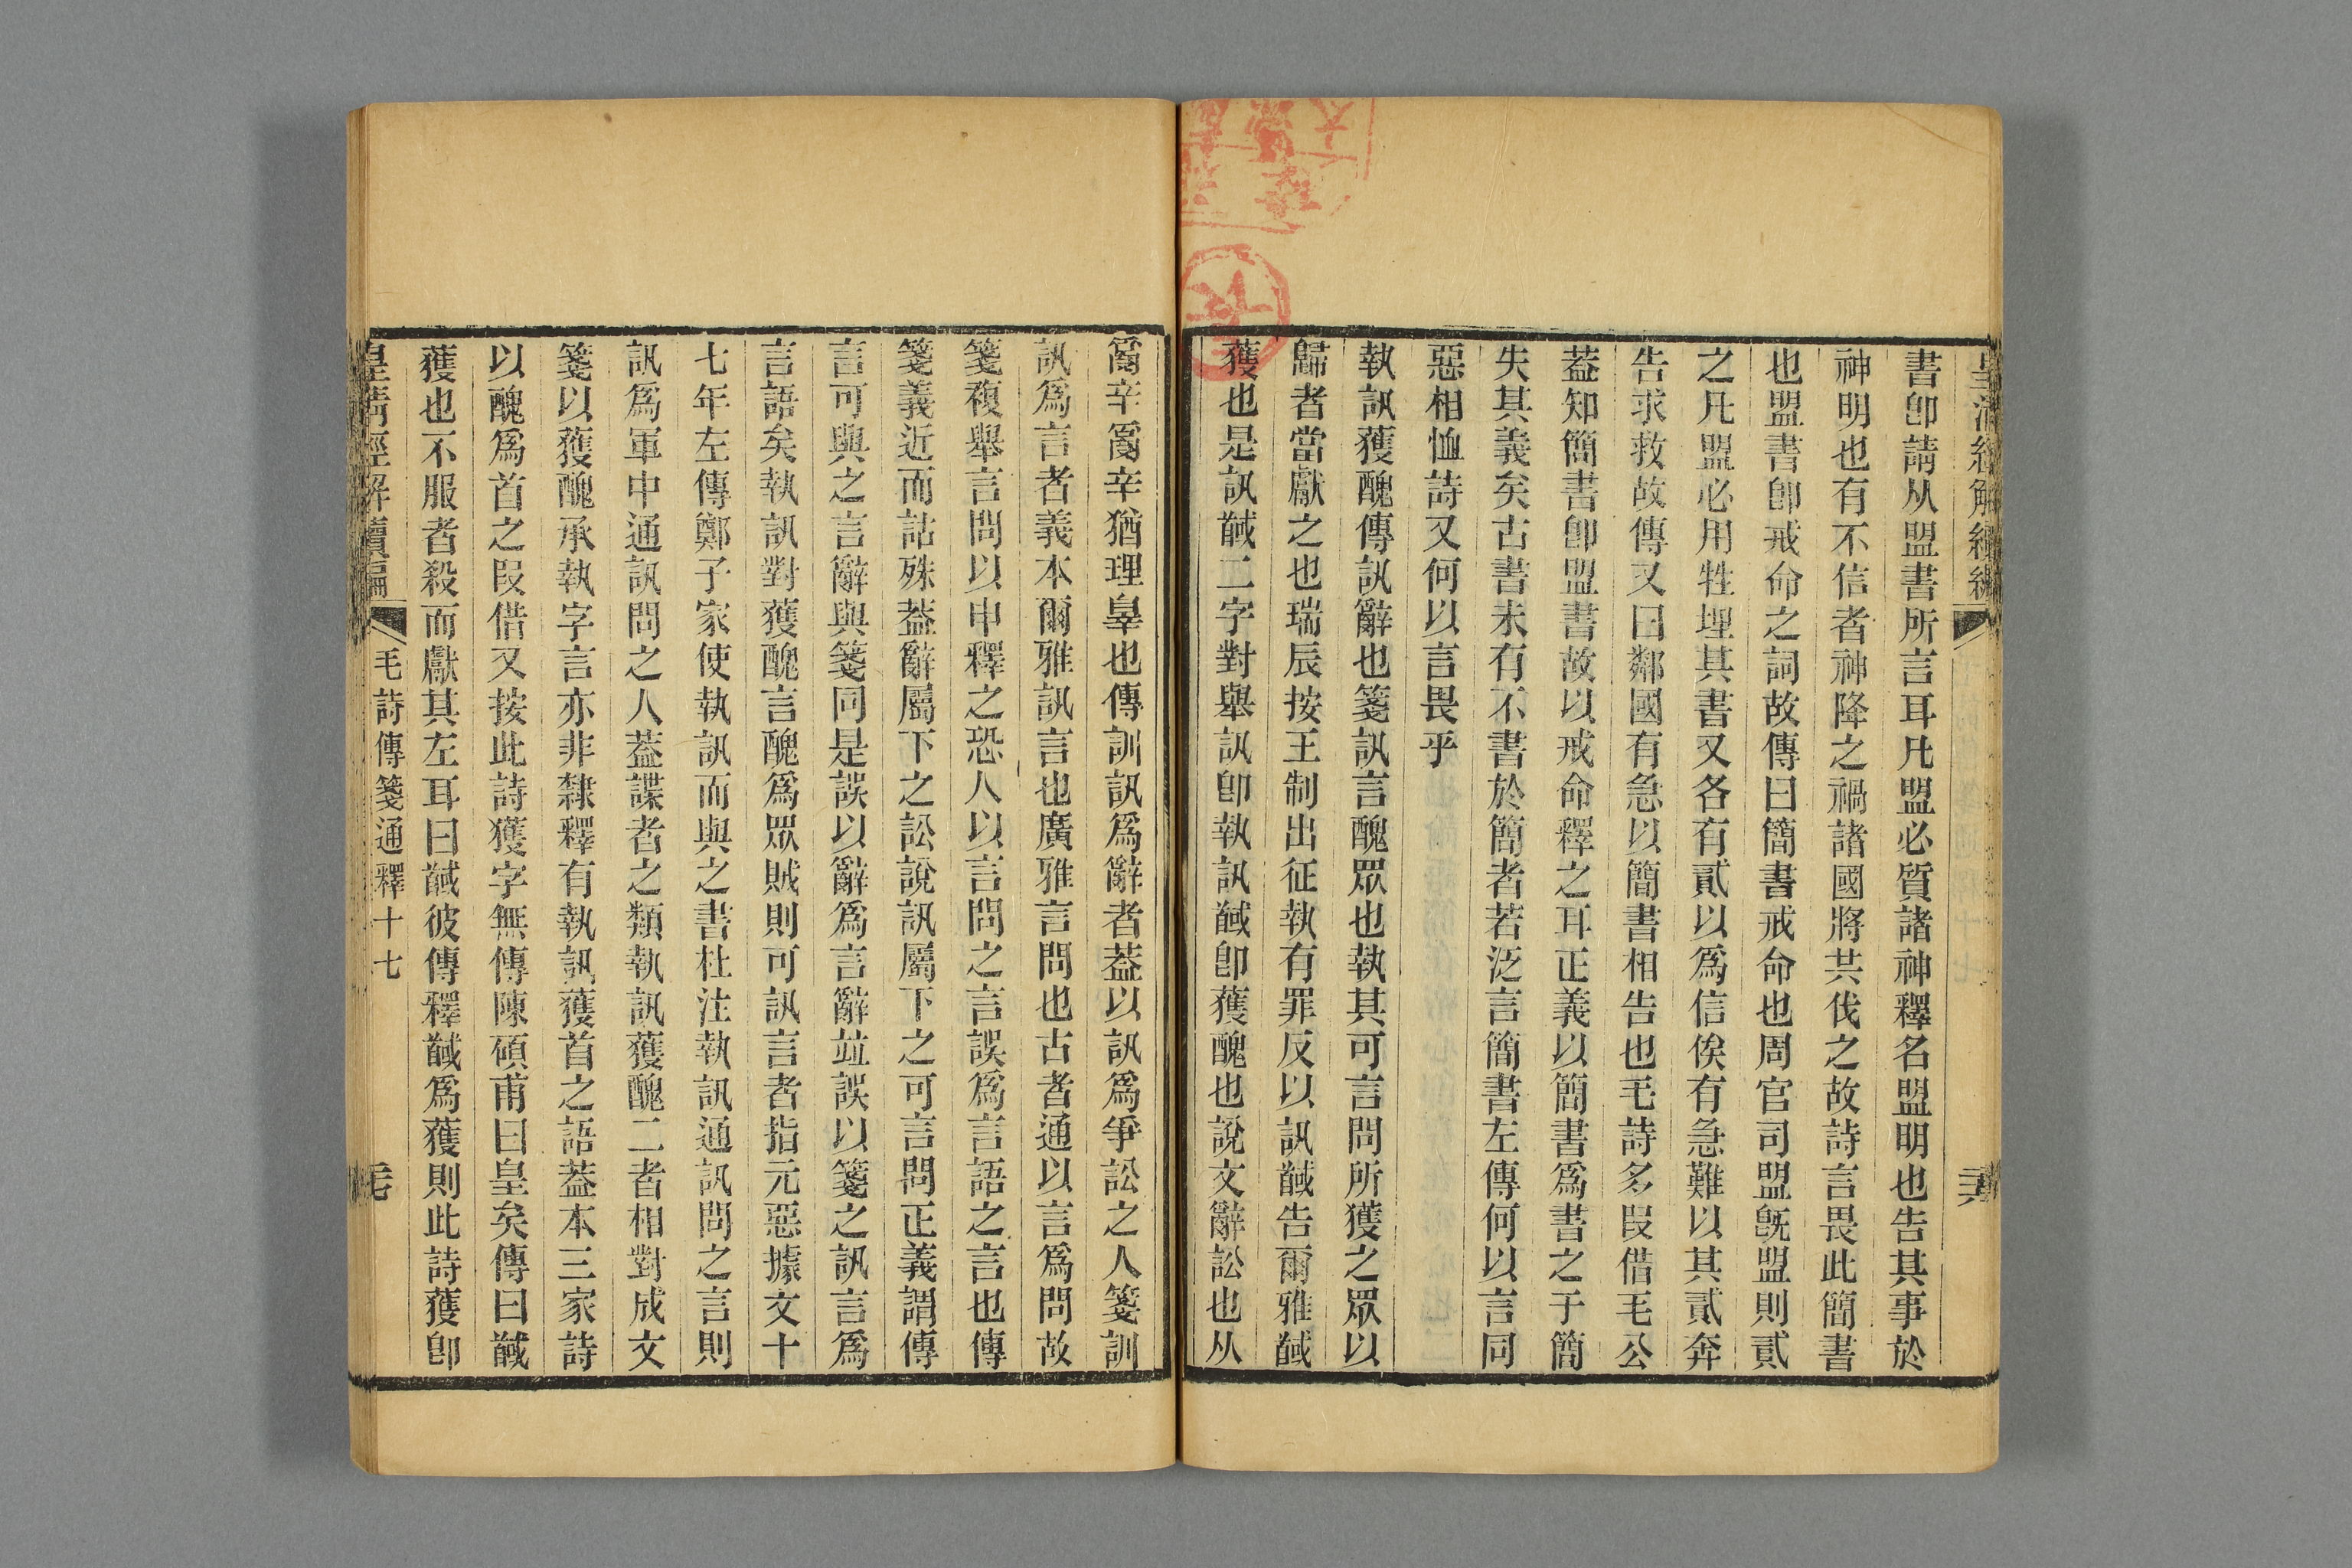 書卽請从盟書所言耳凡盟必質諸神釋名盟明也告其事於
神明也有不信者神降之禍諸國將共伐之故詩言畏此簡書
也盟書卽戒命之詞故傳曰簡書戒命也周官司盟旣盟則貳
之凡盟必用牲埋其書又各有貳以爲信俟有急難以其貳奔
告求救故傳又曰鄰國有急以簡書相告也毛詩多叚借毛公
葢知簡書卽盟書故以戒命釋之耳正義以簡書爲書之于簡
失其義矣古書未有不書於簡者若泛言簡書左傳何以言同
惡相恤詩又何以言畏乎
執訊獲醜傳訊辭也箋訊言醜眾也執其可言問所獲之眾以
歸者當獻之也瑞辰按王制出征執有罪反以訊馘告爾雅馘
獲也是訊馘二字對舉訊卽執訊馘卽獲醜也說文辭訟也从
𤔔辛𤔔辛猶理辜也傳訓訊爲辭者葢以訊爲爭訟之人箋訓
訊爲言者義本爾雅訊言也廣雅言問也古者通以言爲問故
箋複舉言問以申釋之恐人以言問之言誤爲言語之言也傳
箋義近而詁殊葢辭屬下之訟說訊屬下之可言問正義謂傳
言可與之言辭與箋同是誤以辭爲言辭竝誤以箋之訊言爲
言語矣執訊對獲醜言醜爲眾賊則可訊言者指元惡據文十
七年左傳鄭子家使執訊而與之書杜注執訊通訊問之言則
訊爲軍中通訊問之人葢諜者之類執訊獲醜二者相對成文
箋以獲醜承執字言亦非隸釋有執訊獲首之語葢本三家詩
以醜爲首之叚借又按此詩獲字無傳陳碩甫曰皇矣傳曰馘
獲也不服者殺而獻其左耳曰馘彼傳釋馘爲獲則此詩獲卽
皇清經解續編
毛詩傳箋通釋十七